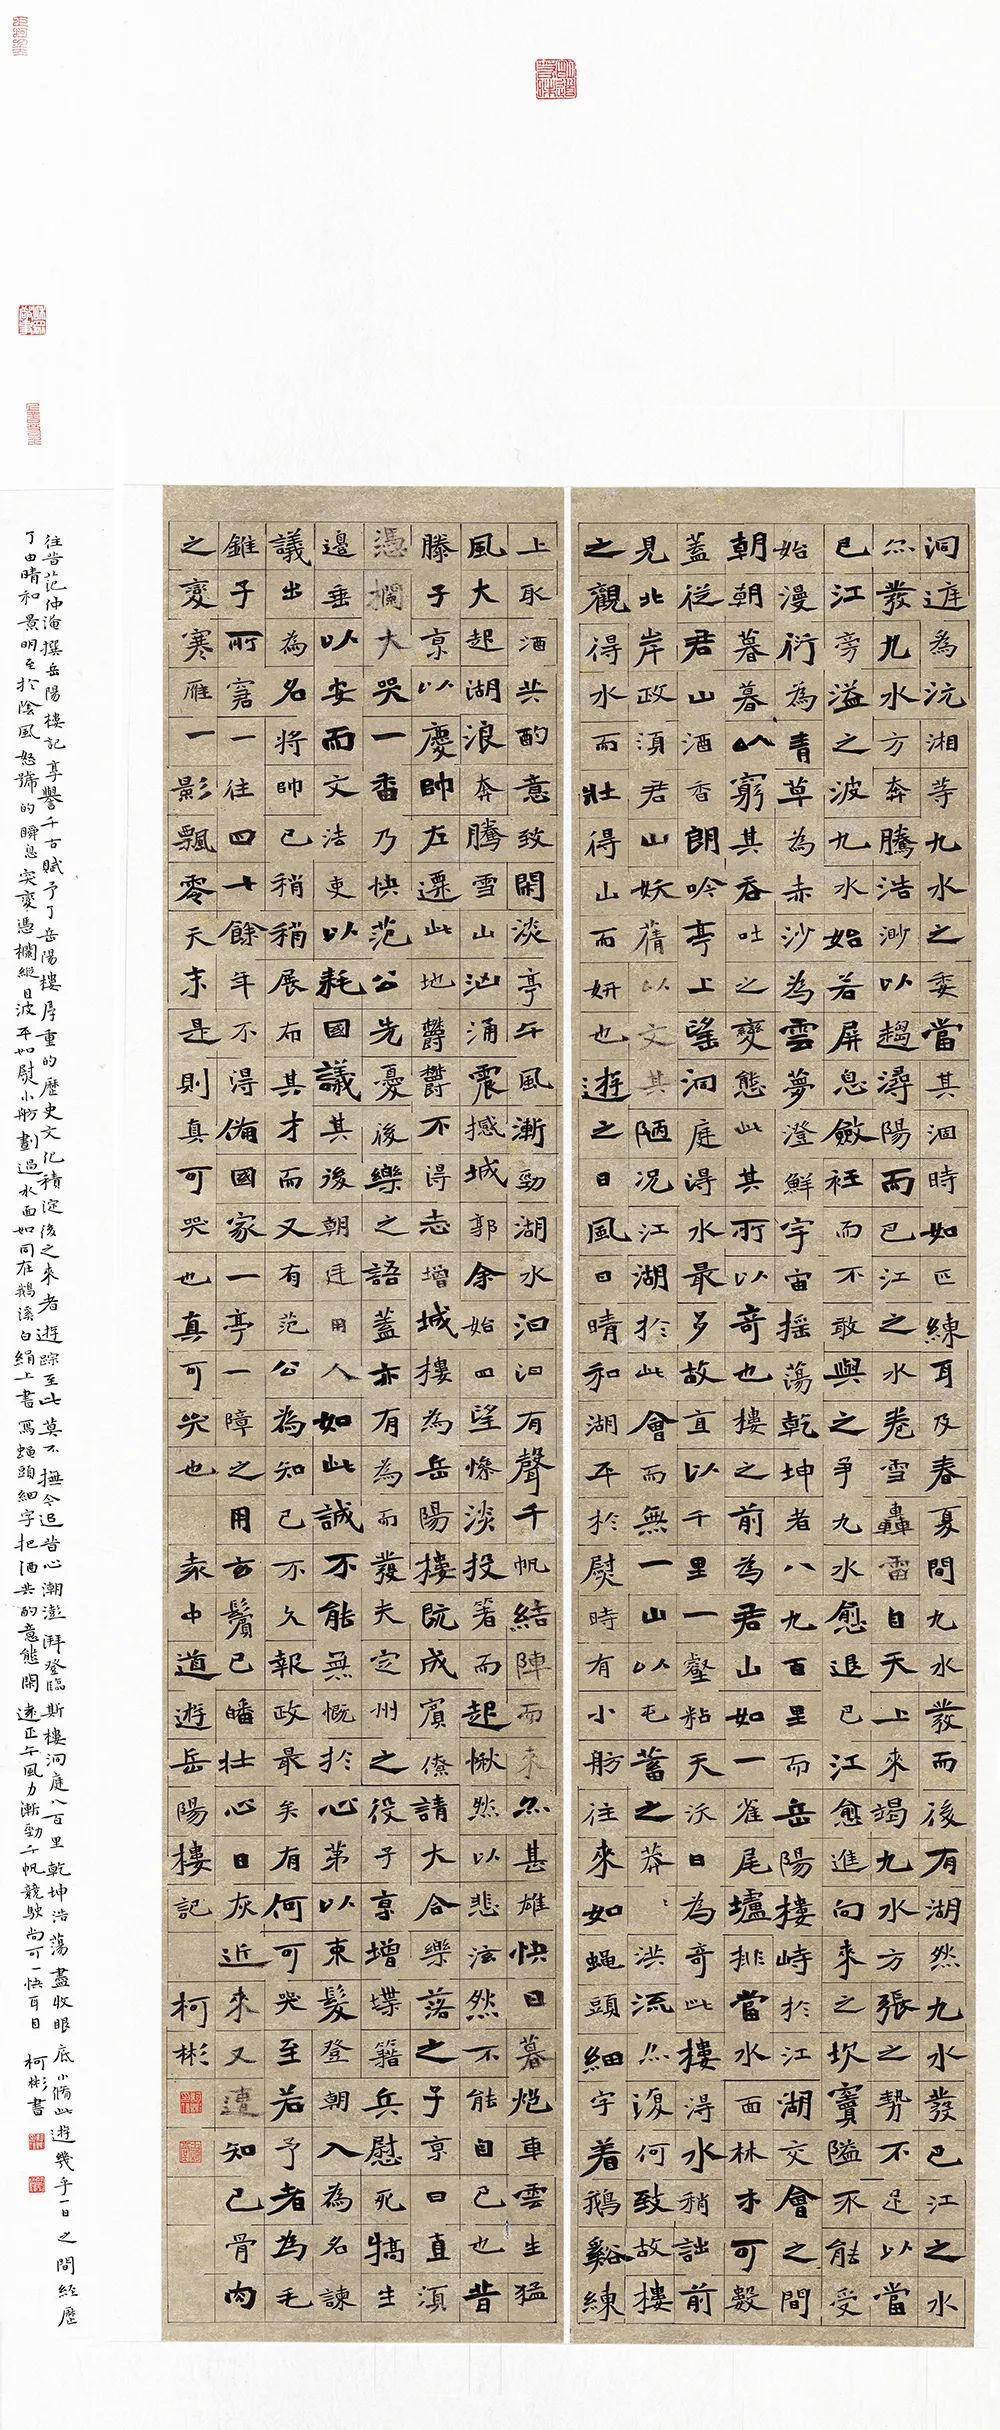 洞庭為沅湘等九水之委當其涸時如匹練耳及春夏間九水發而後有湖然九水發巴江之水
亦發九水方奔騰浩渺以趨潯陽而巴江之水卷雪轟雷自天上來竭九水方張之勢不足以當
巴江旁溢之波九水始若屏息斂衽而不敢與之爭九水愈退巴江愈進向來之坎竇隘不能受
始漫衍為青草為赤沙為雲夢澄鮮宇宙搖蕩乾坤者八九百里而岳陽樓峙於江湖交會之間
朝朝暮暮以窮其吞吐之變態此其所以奇也樓之前為君山如一雀尾壚排當水面林木可數
蓋從君山酒香朗吟亭上望洞庭得水最多故直以千里一壑粘天沃日為奇此樓得水稍詘前
見北岸政須君山妖蒨以文其陋況江湖於此會而無一山以屯蓄之莽〻洪流亦復何致故樓
之觀得水而壯得山而妍也遊之日風日晴和湖平於熨時有小舫往來如蠅頭細字着鵝谿練
上取酒共酌意致閑淡亭午風漸勁湖水汩汩有聲千帆結陣而來亦甚雄快日暮炮車雲生猛
風大起湖浪奔騰雪山洶涌震撼城郭余始四望慘淡投箸而起愀然以悲泫然不能自已也昔
滕子京以慶帥左遷此地鬱鬱不得志增城樓為岳陽樓既成賓僚請大合樂落之子京曰直須
憑欄大哭一番乃快范公先憂後樂之語蓋亦有為而發夫定州之役子京增堞籍兵慰死犒生
邊垂以安而文法吏以耗國議其後朝廷用人如此誠不能無慨於心第以束髮登朝入為名諫
議出為名將帥已稍稍展布其才而又有范公為知己不久報政最矣有何可哭至若予者為毛
錐子所窘一往四十餘年不得備國家一亭一障之用玄鬢已皤壯心日灰近來又遭知己骨肉
之變寒雁一影飄零天末是則真可哭也真可哭也袁中道遊岳陽樓記 柯彬
往昔范仲淹撰岳陽樓記享譽千古賦予了岳陽樓厚重的歷史文化積淀後之來者遊踪至此莫不撫今追昔心潮澎湃登臨斯樓洞庭八百里乾坤浩蕩盡收眼底小脩此遊幾乎一日之間經歷
了由晴和景明至於陰風怒號的瞬息突變憑欄縱目波平如熨小舫劃過水面如同在鵝溪白絹上書寫蠅頭細字把酒共酌意態閑遠正午風力漸勁千帆競駛尚可一快耳目 柯彬書